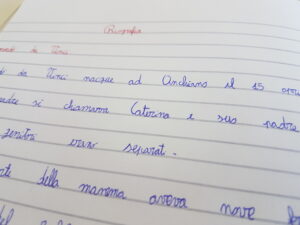 Biografia
da Vinci
da Vinci nacque ad Anchiano il 15
si chiamava Caterina e suo padre
erano separat.
della mamma aveva nove